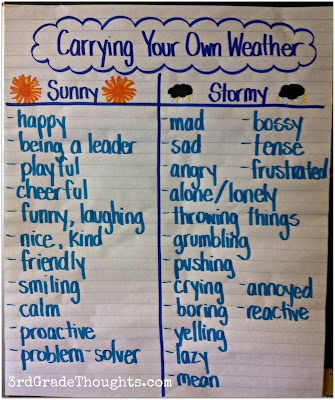 Carrying Your Own Weather
Sunny
Stormy
- happy
- being a leader
- playful
- cheerful
- funny, laughing
- nice, kind
- friendly
- smiling
- calm
- proactive
- problem-solver
- mad - bossy
- sad - tense
- angry - frustrated
- alone/lonely
- throwing things
- grumbling
- pushing
- crying - annoyed
- boring - reactive
- yelling
- lazy
- mean
3rdGradeThoughts.com